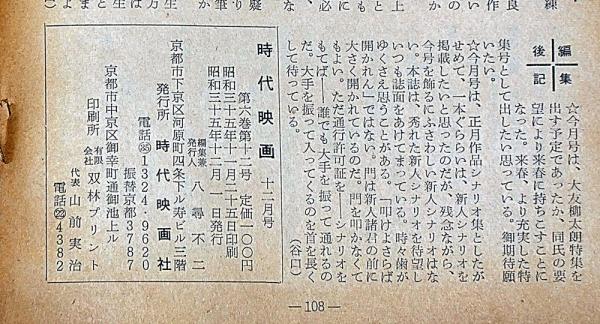 編集
後記
☆今月号は、大友柳太朗特集を
出す予定であったか、同氏の要
望により来春に持ちこすことに
なった。来春、より充実した特
集号として出したい思っている。御期待願
いたい。
☆今月号は、正月作品シナリオ集としたが
せめて、一本ぐらいは、新人シナリオを
掲載したいと思ったのだが、残念ながら、
今号を飾るにふさわしい新人シナリオはな
い。本誌は、秀れた新人シナリオを待望し
いつも誌面をあけてまっている。時々歯が
ゆくさえ思うことがある。「叩けよさらば
開かれん」ではない。門は新人諸君の前に
大きく開かれているのだ。門を叩かなくて
もよい。ただ通行許可証を――シナリオを
もてば――誰でも大手を振って通れるの
だ。大手を振って入ってくるのを首を長く
して待っている。（谷口）
時代映画 十二月号
第六巻第十二号 定価一〇〇円
昭和三十五年十一月二十五日印刷
昭和三十五年十二月一日発行
編集兼発行人 八尋不二
京都市下京区河原町四条下ル寿ビル二階
発行所 時代映画社
電話㉟1324・9620
振替京都3787
京都市中京区御幸町通御池上ル
印刷所 有限会社 双林プリント
代表 山前実治
電話㉒4382
―108―